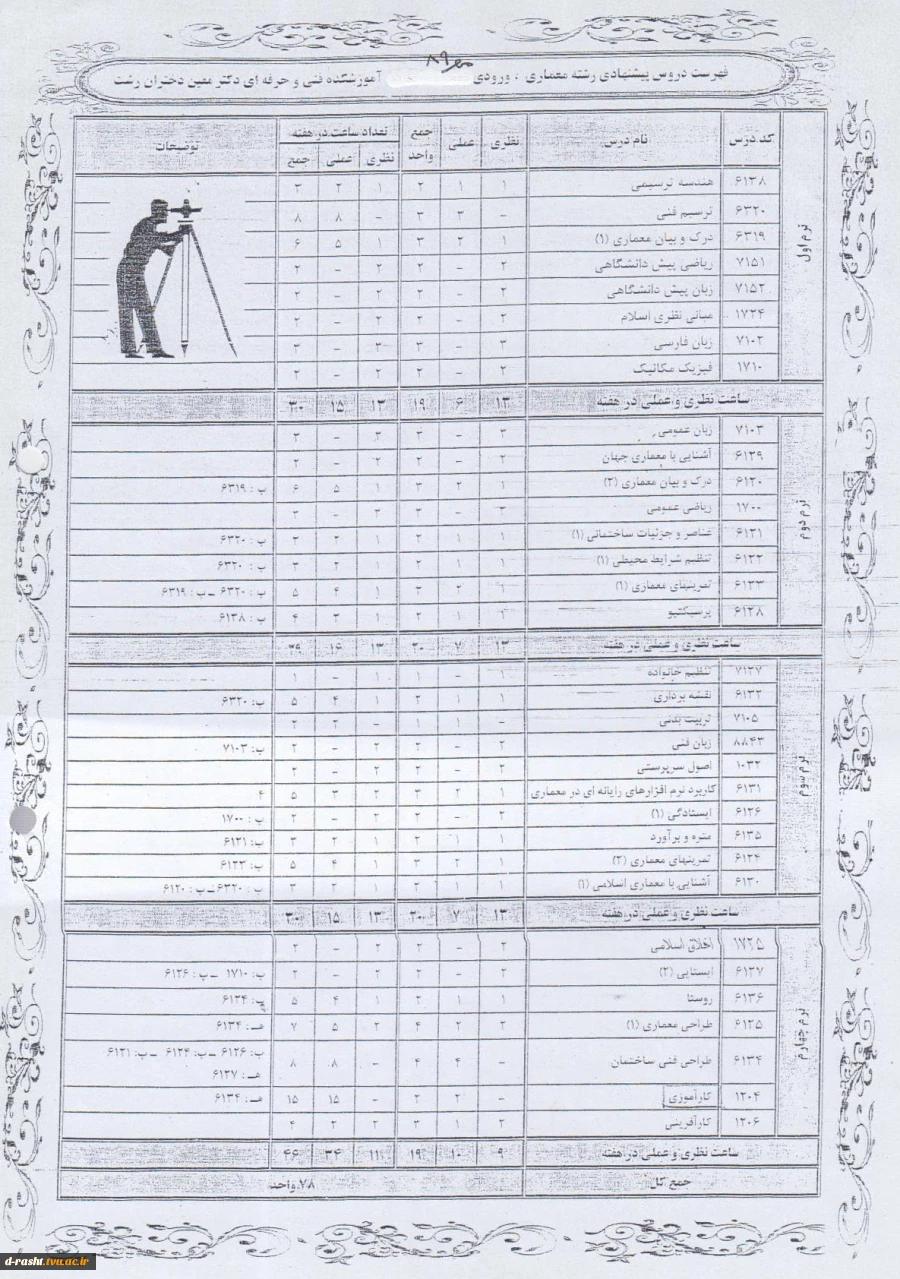 مهر ۸۹
فهرست دروس پیشنهادی رشته معماری ، ورودی آموزشکده فنی و حرفه ای دکتر معین دختران رشت
کد درس نام درس نظری عملی جمع واحد تعداد ساعت در هفته توضیحات
نظری عملی جمع
ترم اول
۶۱۳۸ هندسه ترسیمی ۱ ۱ ۲ ۱ ۲ ۳
۶۳۲۰ ترسیم فنی - ۳ ۳ - ۸ ۸
۶۳۱۹ درک و بیان معماری (۱) ۱ ۲ ۳ ۱ ۵ ۶
۷۱۵۱ ریاضی پیش دانشگاهی ۲ - ۲ ۲ - ۲
۷۱۵۲ زبان پیش دانشگاهی ۲ - ۲ ۲ - ۲
۱۷۲۴ مبانی نظری اسلام ۲ - ۲ ۲ - ۲
۷۱۰۲ زبان فارسی ۳ - ۳ ۳ - ۳
۱۷۱۰ فیزیک مکانیک ۲ - ۲ ۲ - ۲
ساعت نظری و عملی در هفته ۱۳ ۶ ۱۹ ۱۳ ۱۵ ۳۰
ترم دوم
۷۱۰۳ زبان عمومی ۳ - ۳ ۳ - ۳
۶۱۲۹ آشنایی با معماری جهان ۲ - ۲ ۲ - ۲
۶۱۲۰ درک و بیان معماری (۲) ۱ ۲ ۳ ۱ ۵ ۶ پ : ۶۳۱۹
۱۷۰۰ ریاضی عمومی ۳ - ۳ ۳ - ۳
۶۱۲۱ عناصر و جزئیات ساختمانی (۱) ۱ ۱ ۲ ۱ ۲ ۳ پ : ۶۳۲۰
۶۱۲۲ تنظیم شرایط محیطی (۱) ۱ ۱ ۲ ۱ ۲ ۳ پ : ۶۳۲۰
۶۱۲۳ تمرینهای معماری (۱) ۱ ۲ ۳ ۱ ۴ ۵ پ : ۶۳۲۰ - پ : ۶۳۱۹
۶۱۲۸ پرسپکتیو ۱ ۱ ۲ ۱ ۳ ۴ پ : ۶۱۳۸
ساعت نظری و عملی در هفته ۱۳ ۷ ۲۰ ۱۳ ۱۶ ۲۹
ترم سوم
۷۱۲۷ تنظیم خانواده ۱ - ۱ ۱ - ۱
۶۱۳۲ نقشه برداری ۱ ۱ ۲ ۱ ۴ ۵ پ: ۶۳۲۰
۷۱۰۵ تربیت بدنی - ۱ ۱ - ۲ ۲
۸۸۴۳ زبان فنی ۲ - ۲ ۲ - ۲ پ: ۷۱۰۳
۱۰۳۲ اصول سرپرستی ۲ - ۲ ۲ - ۲
۶۱۳۱ کاربرد نرم افزارهای رایانه ای در معماری ۱ ۲ ۳ ۲ ۳ ۵ ۴
۶۱۲۶ ایستادگی (۱) ۲ - ۲ ۲ - ۲ پ : ۱۷۰۰
۶۱۳۵ متره و برآورد ۱ ۱ ۲ ۱ ۲ ۳ پ: ۶۱۲۱
۶۱۲۴ تمرینهای معماری (۲) ۱ ۲ ۳ ۱ ۴ ۵ پ: ۶۱۲۳
۶۱۳۰ آشنایی با معماری اسلامی (۱) ۱ ۱ ۲ ۱ ۲ ۳ پ : ۶۳۲۰ - پ : ۶۱۲۰
ساعت نظری و عملی در هفته ۱۳ ۷ ۲۰ ۱۳ ۱۵ ۳۰
ترم چهارم
۱۷۲۵ اخلاق اسلامی ۲ - ۲ ۲ - ۲
۶۱۲۷ ایستایی (۲) ۲ - ۲ ۲ - ۲ پ: ۱۷۱۰ - پ: ۶۱۲۶
۶۱۳۶ روستا ۱ ۱ ۲ ۱ ۴ ۵ پ: ۶۱۲۴
۶۱۲۵ طراحی معماری (۱) ۲ ۲ ۴ ۲ ۵ ۷ هـ : ۶۱۳۴
۶۱۳۴ طراحی فنی ساختمان - ۴ ۴ - ۸ ۸ پ: ۶۱۲۶ - پ: ۶۱۲۴ - پ: ۶۱۲۱
هـ : ۶۱۲۷
۱۲۰۴ کارآموزی - ۲ ۲ - ۱۵ ۱۵ هـ : ۶۱۳۴
۱۲۰۶ کارآفرینی ۲ ۱ ۳ ۲ ۲ ۴
ساعت نظری و عملی در هفته ۹ ۱۰ ۱۹ ۱۱ ۳۴ ۴۶
جمع کل ۷۸ واحد
d-rasht.tvu.ac.ir